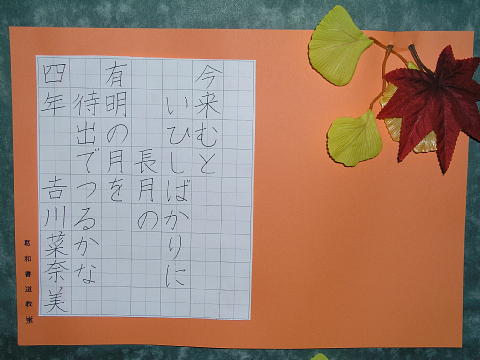 今来むと
いひしばかりに
長月の
有明の月を
待出でつるかな
四年 吉川菜奈美
葛和書道教室